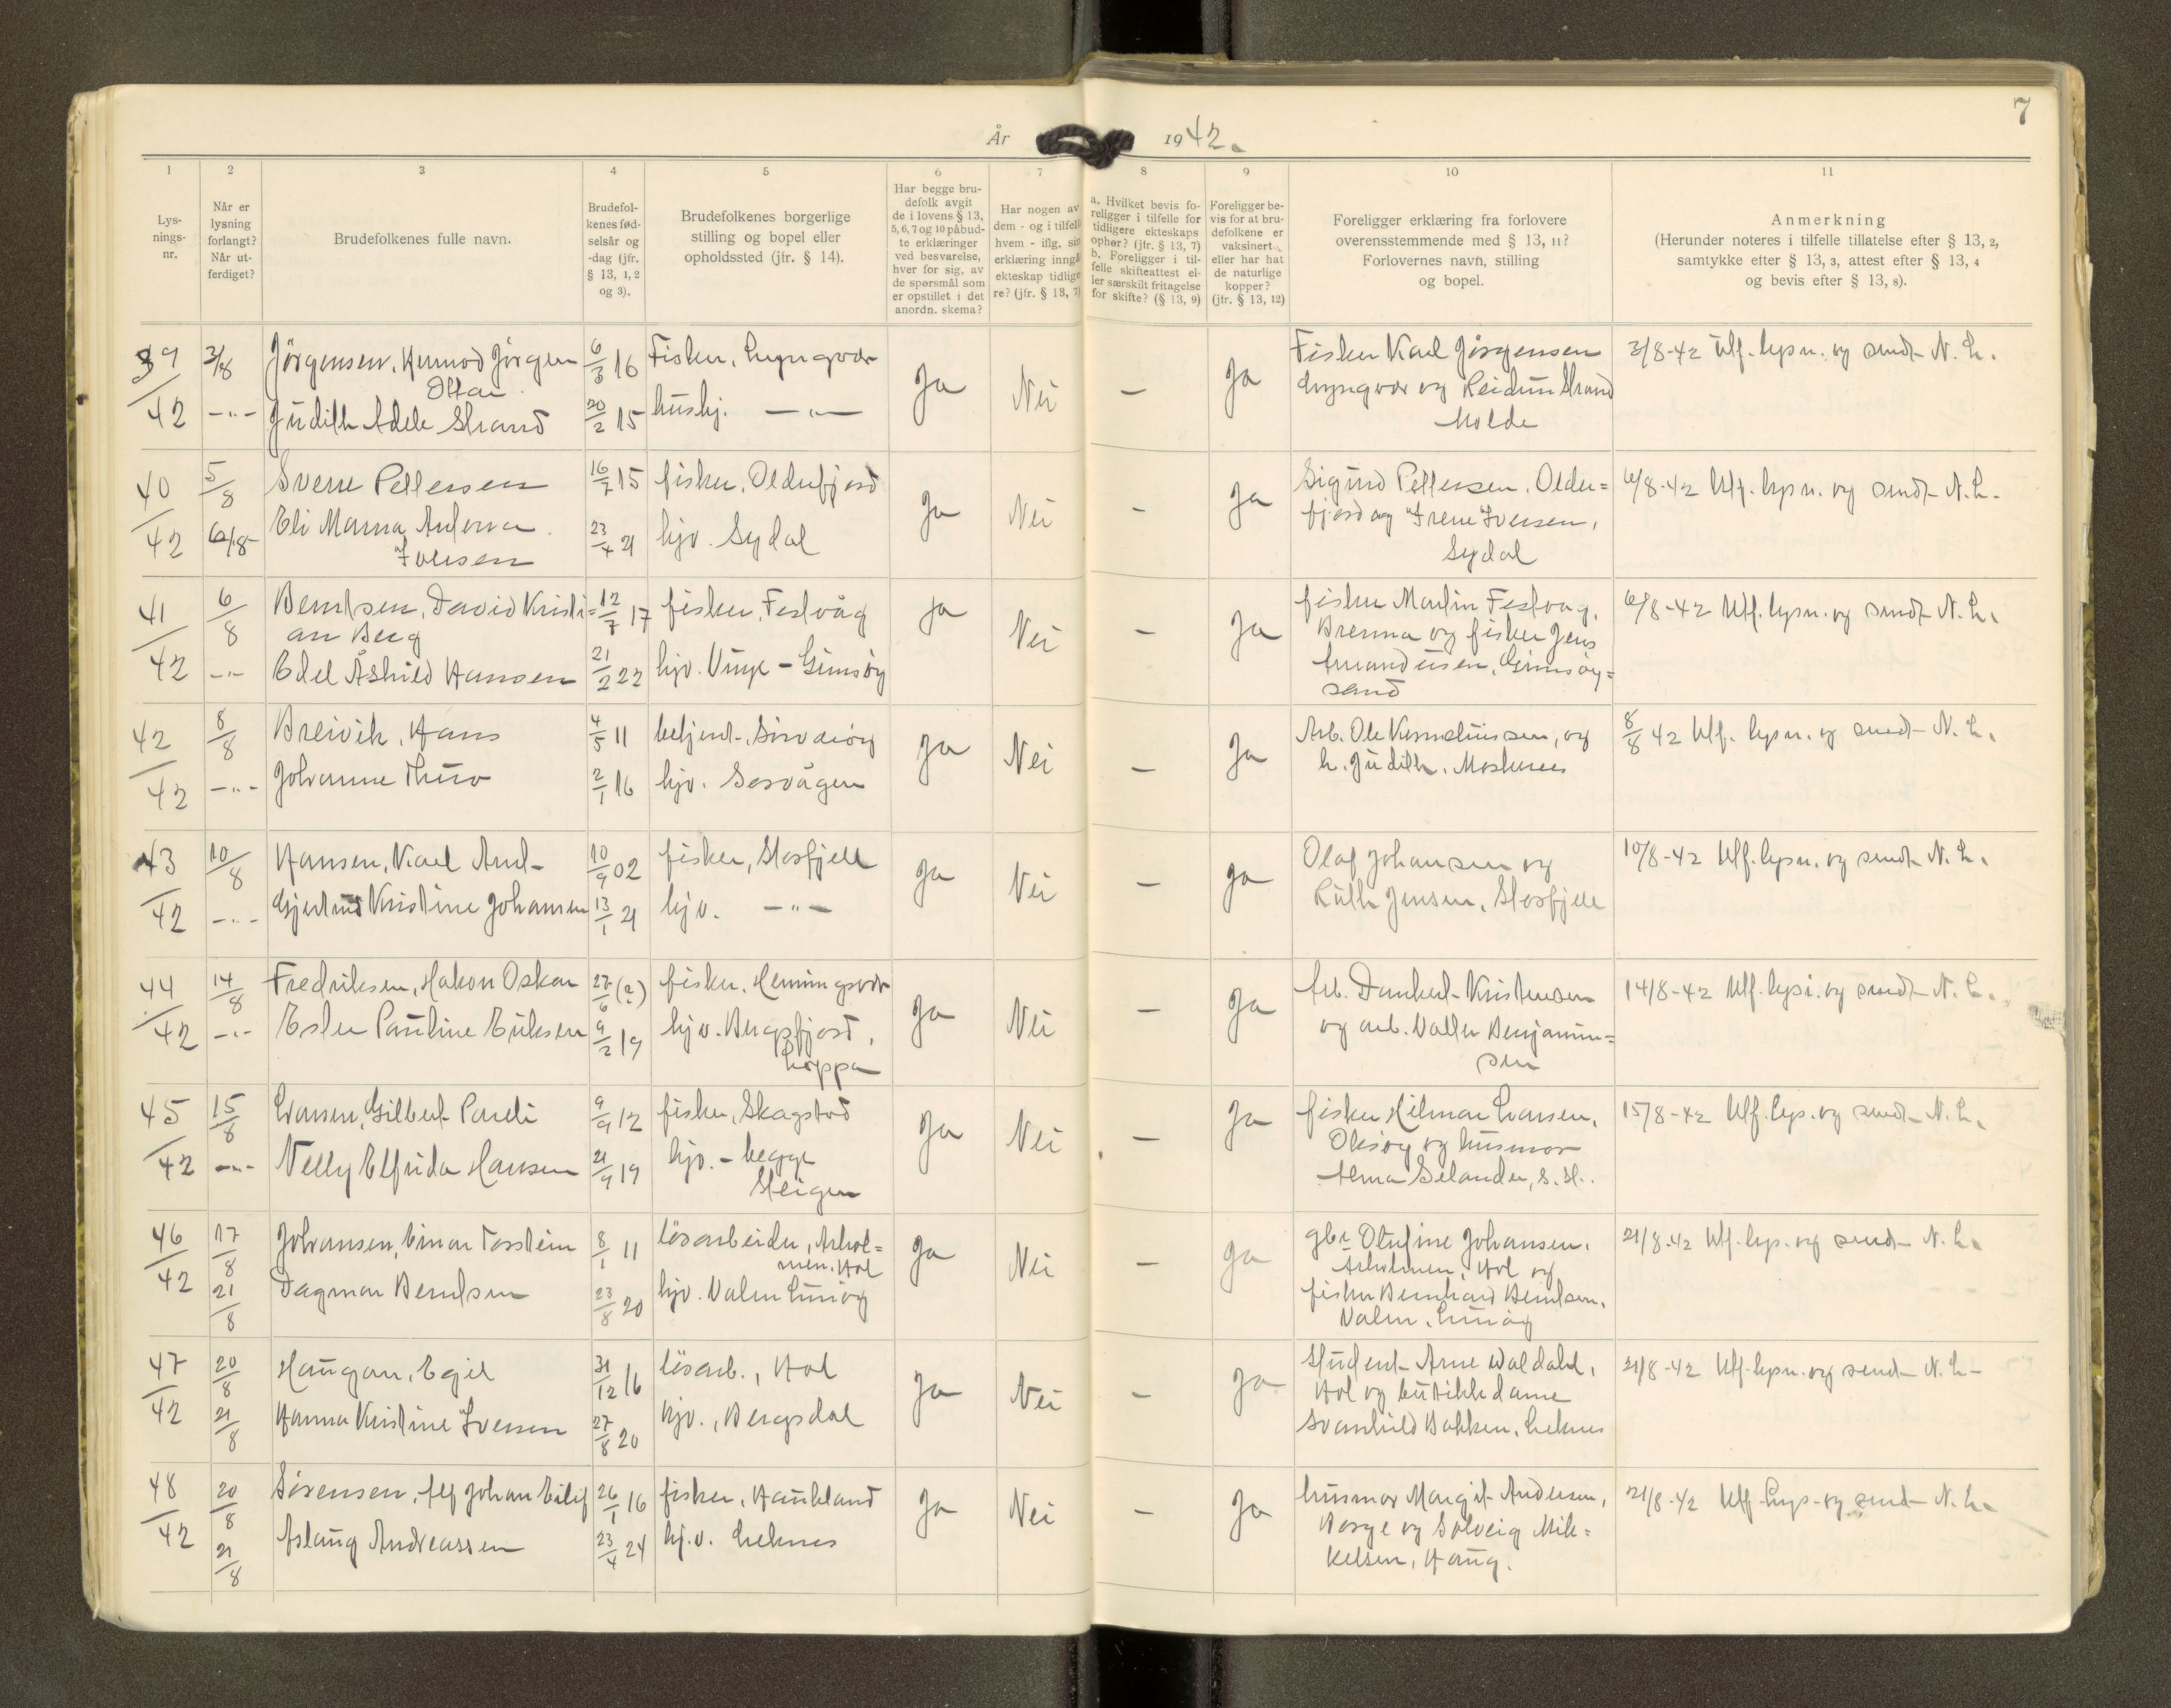 7
År 1942.
1 2 3 4 5 6 7 8 9 10 11
Lys-
nings-
nr.
Når er
lysning
forlangt?
Når ut-
ferdiget?
Brudefolkenes fulle navn.
Brudefol-
kenes fød-
selsår og
-dag (jfr.
§ 13, 1, 2
og 3).
Brudefolkenes borgerlige
stilling og bopel eller
opholdssted (jfr. § 14).
Har begge bru-
defolk avgit
de i lovens § 13,
5, 6, 7 og 10 påbud-
te erklæringer
ved besvarelse,
hver for sig, av
de spørsmål som
er opstillet i det
anordn. skema?
Har nogen av
dem - og i tilfelle
hvem - iflg. sin
erklæring inngå
ekteskap tidlige
re? (jfr. § 13, 7)
a. Hvilket bevis fo-
religger i tilfelle for
tidligere ekteskaps
ophør? (jfr. § 13, 7)
b. Foreligger i til-
felle skifteattest el-
ler særskilt fritagelse
for skifte? (§ 13, 9)
Foreligger be-
vis for at bru-
defolkene er
vaksinert
eller har hat
de naturlige
kopper?
(jfr. § 13, 12)
Foreligger erklæring fra forlovere
overensstemmende med § 13, 11?
Forlovernes navn, stilling
og bopel.
Anmerkning
(Herunder noteres i tilfelle tillatelse efter § 13, 2,
samtykke efter § 13, 3, attest efter § 13, 4
og bevis efter § 13, 8).
39/42
3/8
-"-
Jørgensen, Hermod Jørgen
Ottar
Judith Adele Strand
6/3 16
20/2 15
Fisker, Lyngvær
hushj. -"-
Ja
Nei
-
Ja
Fisker Karl Jørgensen
Lyngvær og Reidun Strand
Molde
3/8-42 Utf. lysn. og sendt N. L.
40/42
5/8
6/8
Sverre Pettersen
Eli Marna
Iversen
16/7 15
23/4 21
fisker, Oldufjord
hjv. Sydal
Ja
Nei
-
Ja
Sigurd Pettersen, Oldu=
fjord og Irene Iversen,
Sydal
6/8-42 Utf. lysn. og sendt N. L.
41/42
6/8
-"-
Berntsen, David Kristi=
an Berg
Edel Åshild Hansen
12/7 17
21/2 22
fisker, Festvåg
hjv. Vinje - Gimsøy
Ja
Nei
-
Ja
fisker Martin Festvåg,
Brenna og fisker Jens
Amandusen, Gimsøy=
sand
6/8-42 Utf. lysn. og sendt N. L.
42/42
8/8
-"-
Breivik, Hans
Johanne Thuv
4/5 11
2/1 16
betjent,
hjv. Sørvågen
Ja
Nei
-
Ja
Arb. Ole Korneliussen, og
h. Judith, Moskenes
8/8 42 Utf. lysn. og sendt N. L.
43/42
10/8
-"-
Hansen, Karl Arnt
Gjertrud Kristine Johansen
10/9 02
13/1 21
fisker, Storfjell
hjv. -"-
Ja
Nei
-
Ja
Olaf Johansen og
Ruth Jensen, Storfjell
10/8-42 Utf. lysn. og sendt N. L.
44/42
14/8
-"-
Fredriksen, Håkon Oskar
Ester Pauline Eriksen
27/6 (?)
9/2 19
fisker, Henningsvær
hjv. Bergsfjord,
Loppa
Ja
Nei
-
Ja
Arb. Dankert Kristensen
og arb. Valter Benjamin=
sen
14/8-42 Utf. lysn. og sendt N. L.
45/42
15/8
-"-
Evansen, Gilbert Pareli
Nelly Elfrida Hansen
9/9 12
21/9 19
fisker, Skagstad
hjv. - begge
Steigen
Ja
Nei
-
Ja
fisker Hilmar Evansen,
Oksøy og husmor
Alma Selander, S. st.
15/8-42 Utf. lys. og sendt N. L.
46/42
17/8
21/8
Johansen, Einar Torstein
Dagmar Berntsen
8/1 11
23/8 20
løsarbeider, Arhol=
men, Hol
hjv. Valen Limøy
Ja
Nei
-
Ja
gbr. Olufine Johansen,
Arholmen, Hol og
fisker Bernhard Berntsen,
Valen, Limøy
21/8-42 Utf. lys. og sendt N. L.
47/42
20/8
21/8
Haugan, Egil
Hanna Kristine Iversen
31/12 16
27/8 20
løsarb., Hol
hjv., Bergsdal
Ja
Nei
-
Ja
Student Arne Waldahl,
Hol og butikkdame
Svanhild Bakken, Leknes
21/8-42 Utf. lysn. og sendt N. L.
48/42
20/8
21/8
Sørensen, Alf Johan Eilif
Aslaug Andreassen
26/1 16
23/4 24
fisker, Haukland
hj.v. Leknes
Ja
Nei
-
Ja
husmor Margit Andersen,
Borge og Solveig Mik=
kelsen, Haug.
21/8-42 Utf. lys. og sendt N. L.